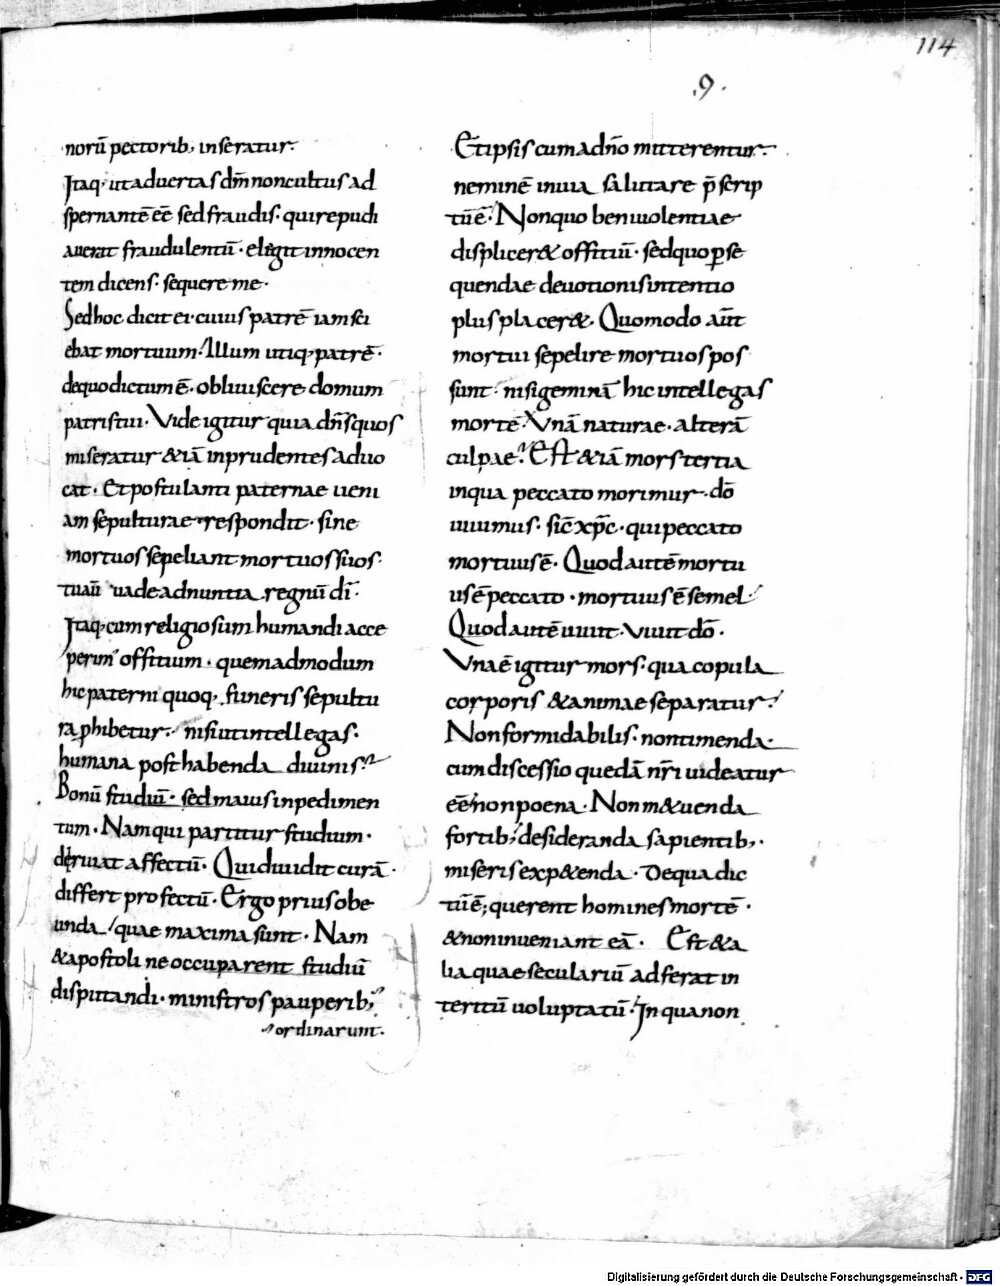 114
.9.
norū pectorib; inseratur.
Itaq; ut aduertas dm̄ non cultus ad
spernantē eē sed fraudis. qui repudi
auerat fraudulentū. eligit innocen
tem dicens. sequere me.
Sed hoc dicit ei cuius patrē iam sci
ebat mortuum. Illum utiq; patrē.
de quo dictum ē. obliuiscere domum
patris tui. Vide igitur quia dn̄s quos
miseratur & iā inprudentes aduo
cat. Et postulanti paternae ueni
am sepulturae respondit. sine
mortuos sepeliant mortuos suos.
tu aū uade adnuntia regnū dī.
Itaq; cum religiosum humandi acce
perim offitium. quemadmodum
hic paterni quoq; funeris sepultu
ra phibetur. nisi ut intellegas.
humana posthabenda diuinis.
Bonū studiū. sed maius inpedimen
tum. Nam qui partitur studium.
deriuat affectū. Qui diuidit curā.
differt profectū. Ergo prius obe
unda quae maxima sunt. Nam
& apostoli ne occuparent studiū
disputandi. ministros pauperib;
ordinarunt.
Et ipsi cum a dn̄o mitterentur.
neminē in uia salutare p̄scrip
tū ē. Non quo beniuolentiae
displicer& offitiū. sed quo ꝑse
quendae deuotionis intentio
plus placer&. Quomodo aūt
mortui sepelire mortuos pos
sunt. nisi geminā hic intellegas
mortē. Vnā naturae. alterā
culpae. Est & iā mors tertia
in qua peccato morimur. dō
uiuimus. sic̄ xp̄c. qui peccato
mortuus ē. Quod autē mortu
us ē peccato. mortuus ē semel.
Quod autē uiuit. Viuit dō.
Vna ē igitur mors. qua copula
corporis & animae separatur.
Non formidabilis. non timenda.
cum discessio quedā nr̄i uideatur
eē non poena. Non m&uenda
fortib; desideranda sapientib;.
miseris exp&enda. De qua dic
tū ē; querent homines mortē.
& non inueniant eā. Est & a
lia quae seculariū adferat in
teritū uoluptatū. In qua non
Digitalisierung gefördert durch die Deutsche Forschungsgemeinschaft - DFG